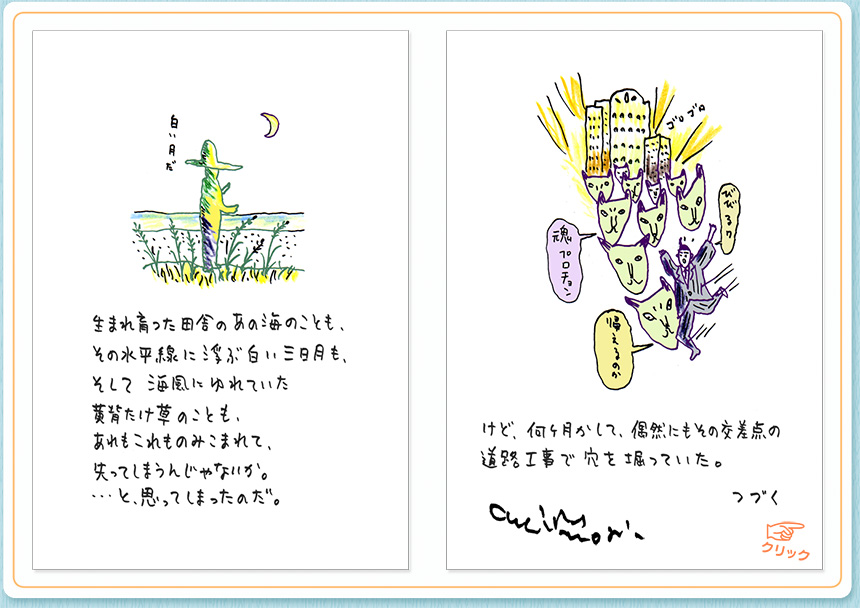 白い月だ
生まれ育った田舎のあの海のことも、
その水平線に浮ぶ白い三日月も、
そして 海風にゆれていた
黄背たけ草のことも、
あれもこれものみこまれて、
失ってしまうんじゃないか。
…と、思ってしまったのだ。
ゴロゴロ
びびるワ
魂プロチョン
帰えるのか
けど、何ヶ月かして、偶然にもその交差点の
道路工事で穴を堀っていた。
つづく
クリック